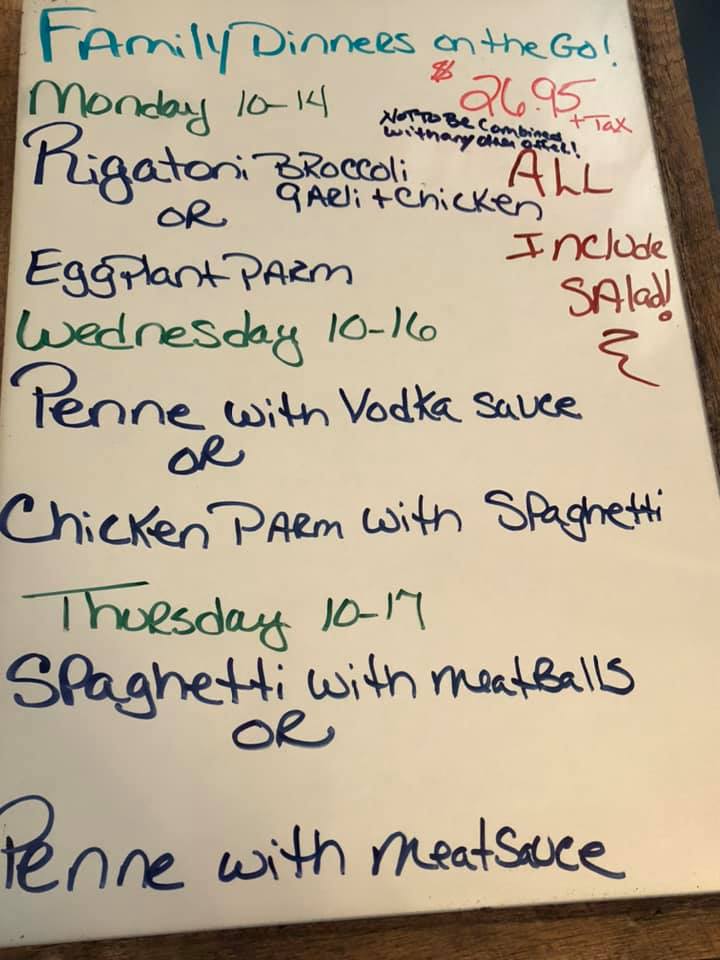 Family Dinners on the Go!
Monday 10-14
$26.95 + Tax
NOT TO Be Combined
with any other offer!
Rigatoni BRoccoli
gARli + Chicken
OR
ALL
Include
SAlad!
EggPlant PARm
Wednesday 10-16
Penne with Vodka sauce
OR
Chicken PARm with Spaghetti
Thursday 10-17
Spaghetti with meatBalls
OR
Penne with meatSauce